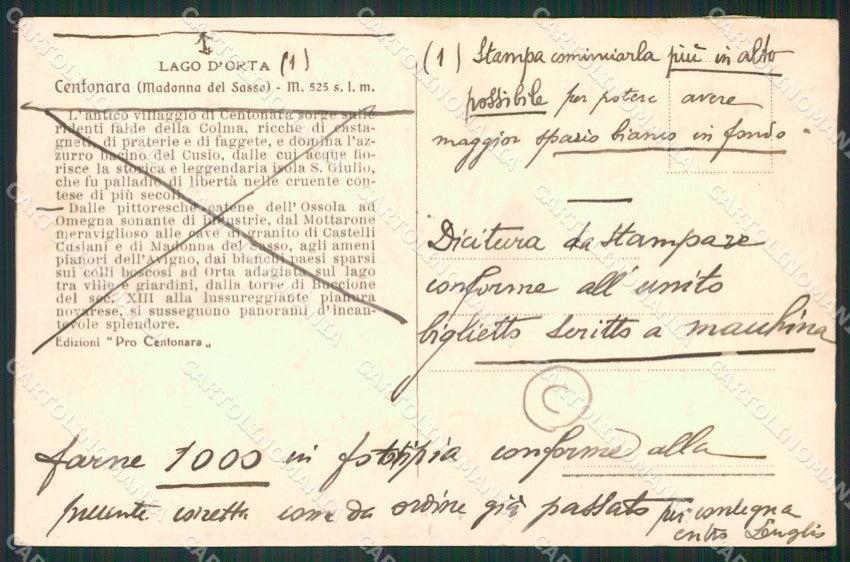 LAGO D'ORTA (1)
Centonara (Madonna del Sasso) - M. 525 s. l. m.
L'antico villaggio di Centonara sorge sulle
ridenti falde della Colma, ricche di casta-
gneti, di praterie e di faggete, e domina l'az-
zurro bacino del Cusio, dalle cui acque fio-
risce la storica e leggendaria isola S. Giulio,
che fu palladio di libertà nelle cruente con-
tese di più secoli.
Dalle pittoresche catene dell'Ossola ad
Omegna sonante di industrie, dal Mottarone
meraviglioso alle cave di granito di Castelli
Cusiani e di Madonna del Sasso, agli ameni
pianori dell'Avigno, dai bianchi paesi sparsi
sui colli boscosi ad Orta adagiata sul lago
tra ville e giardini, dalla torre di Buccione
del sec. XIII alla lussureggiante pianura
novarese, si susseguono panorami d'incan-
tevole splendore.
Edizioni "Pro Centonara„
(1) Stampa cominciarla più in alto
possibile per potere avere
maggior spazio bianco in fondo.
Dicitura da stampare
conforme all'unito
biglietto scritto a macchina
C
farne 1000 in fototipia conforme alla
presente corretta come da ordine già passato per consegna
entro Luglio
CARTOLINOMANIA